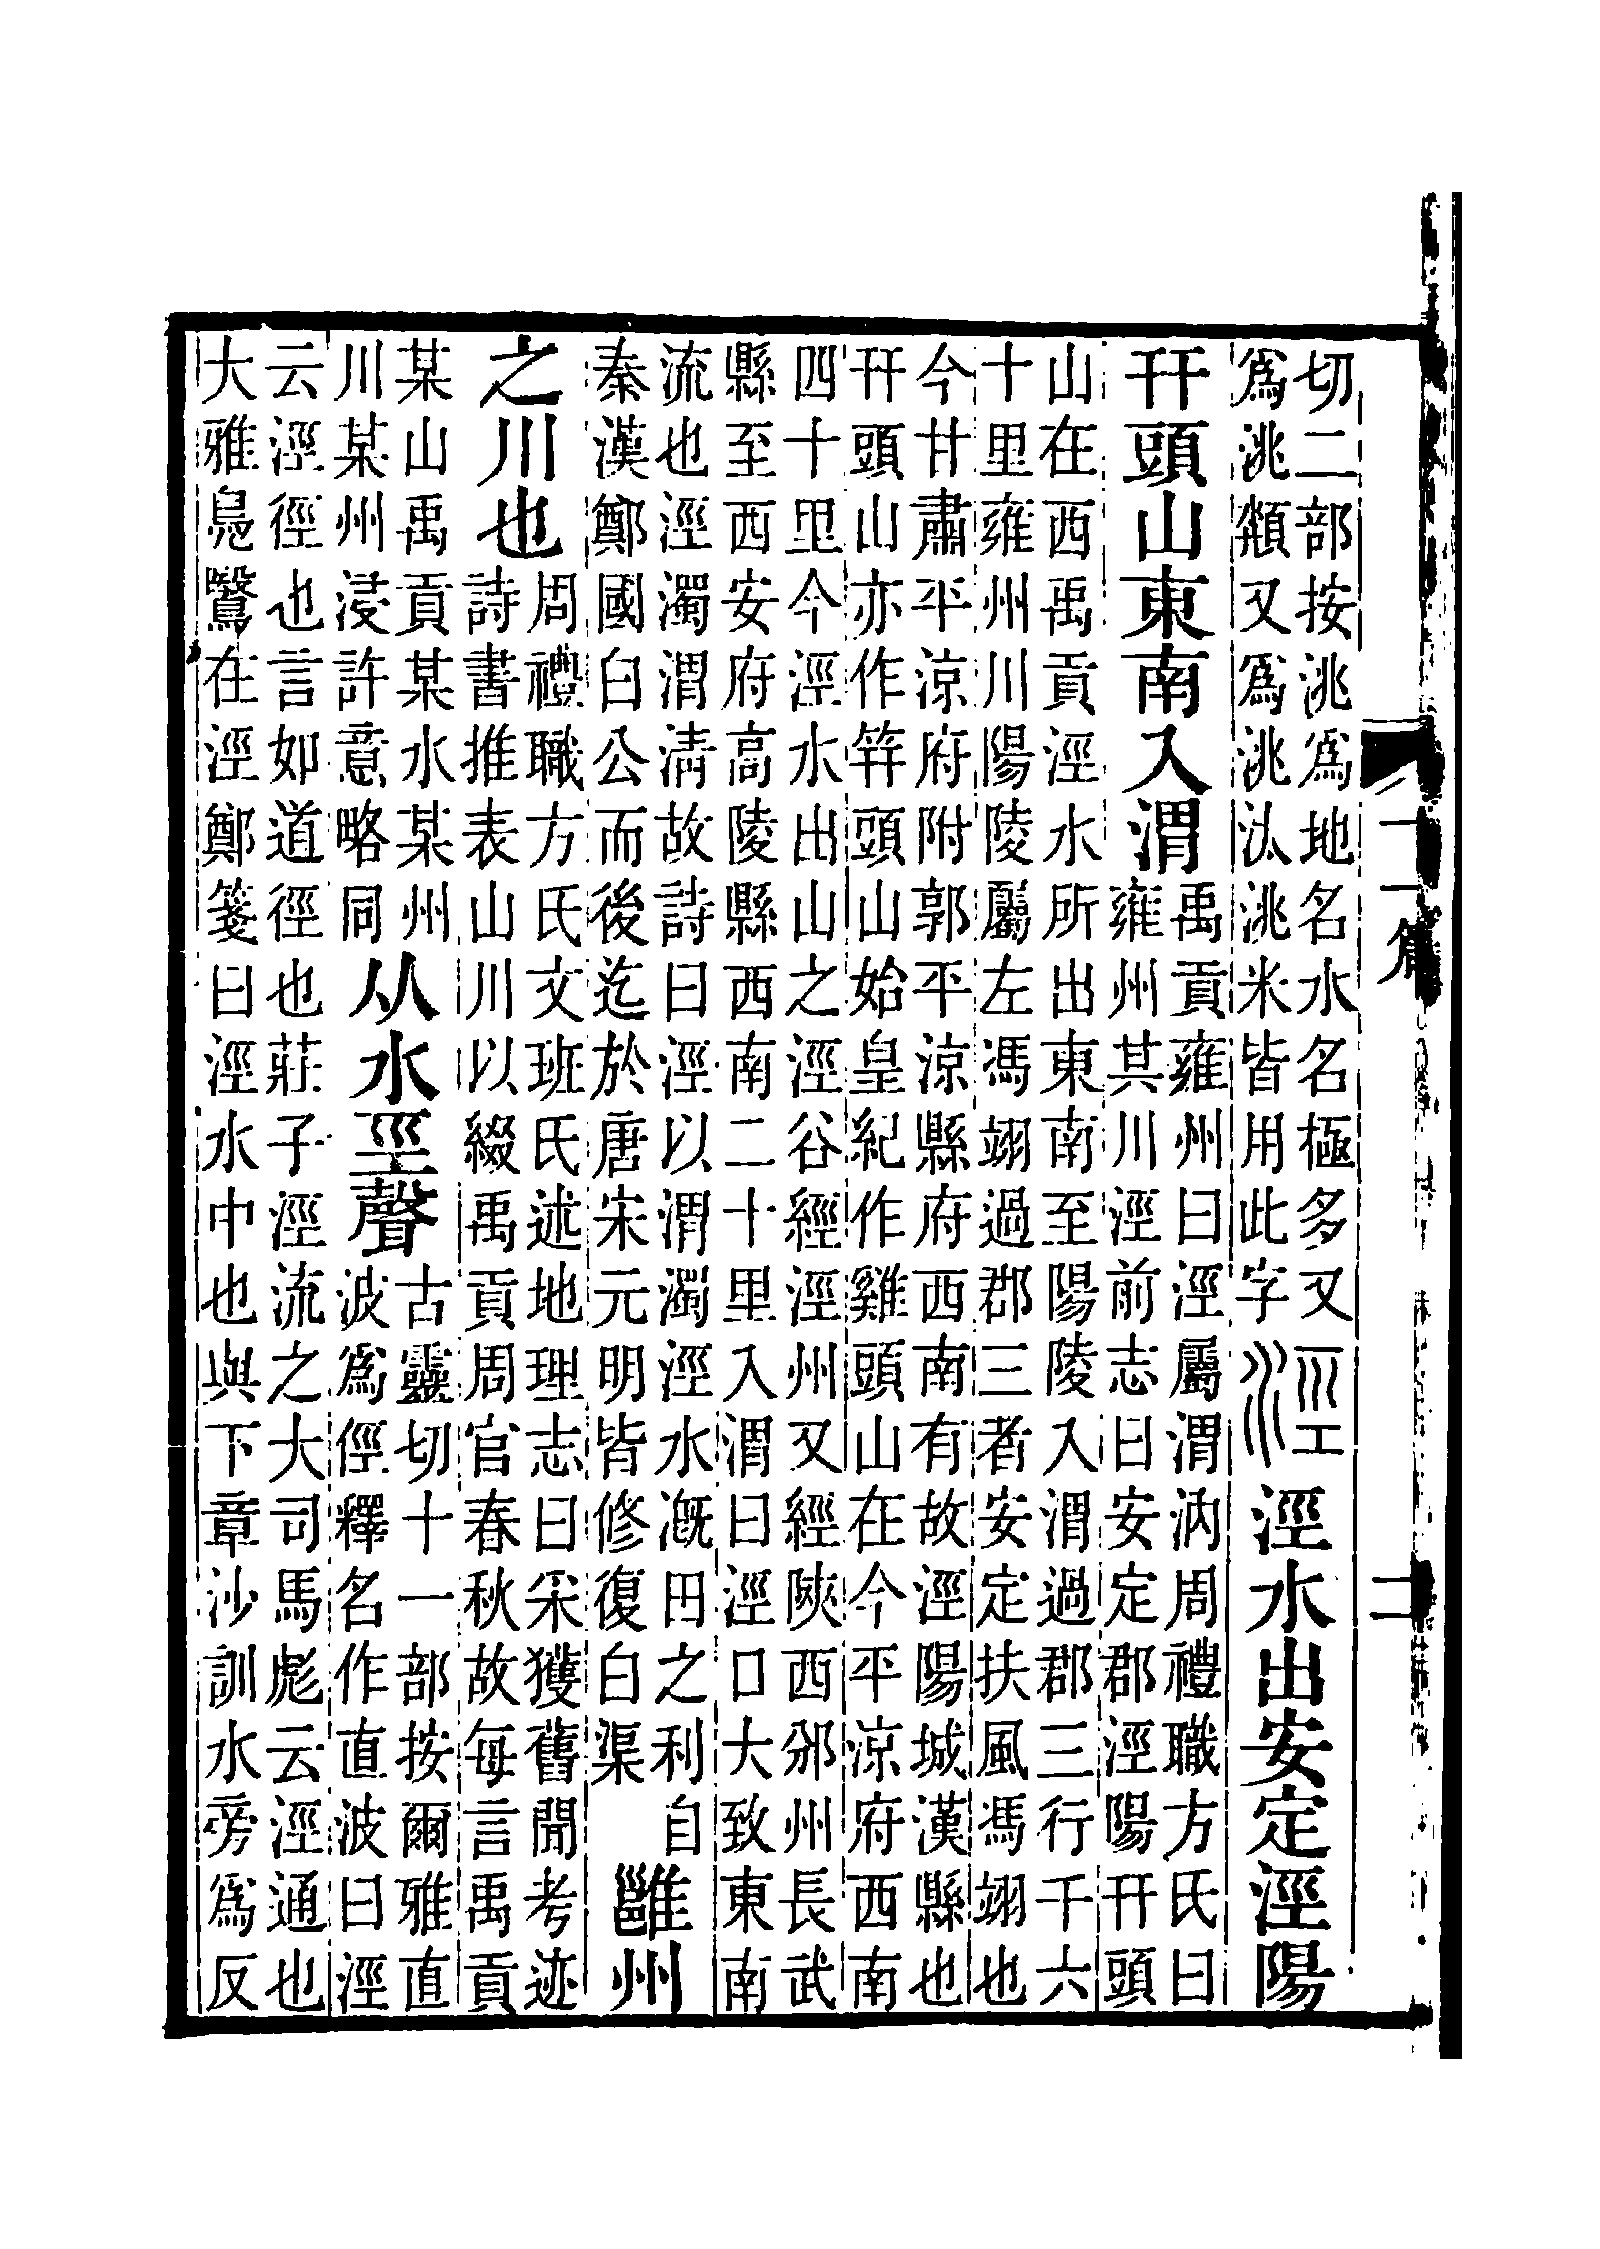 切二部按洮爲地名水名極多又
爲洮頮又爲洮汰洮米皆用此字
涇
涇水出安定涇陽
幵頭山東南入渭
禹貢雍州曰涇屬渭汭周禮職方氏曰
雍州其川涇前志曰安定郡涇陽幵頭
山在西禹貢涇水所出東南至陽陵入渭過郡三行千六
十里雍州川陽陵屬左馮翊過郡三者安定扶風馮翊也
今甘肅平涼府附郭平涼縣府西南有故涇陽城漢縣也
幵頭山亦作筓頭山始皇紀作雞頭山在今平涼府西南
四十里今涇水出山之涇谷經涇州又經陝西邠州長武
縣至西安府高陵縣西南二十里入渭曰涇口大致東南
流也涇濁渭淸故詩曰涇以渭濁涇水漑田之利自
秦漢鄭國白公而後迄於唐宋元明皆修復白渠
雝州
之川也
周禮職方氏文班氏述地理志曰采獲舊聞考迹
詩書推表山川以綴禹貢周官春秋故每言禹貢
某山禹貢某水某州
川某州浸許意略同
从水巠聲
古靈切十一部按爾雅直
波爲俓釋名作直波曰涇
云涇徑也言如道徑也莊子涇流之大司馬彪云涇通也
大雅鳧鷖在涇鄭箋曰涇水中也與下章沙訓水旁爲反
二